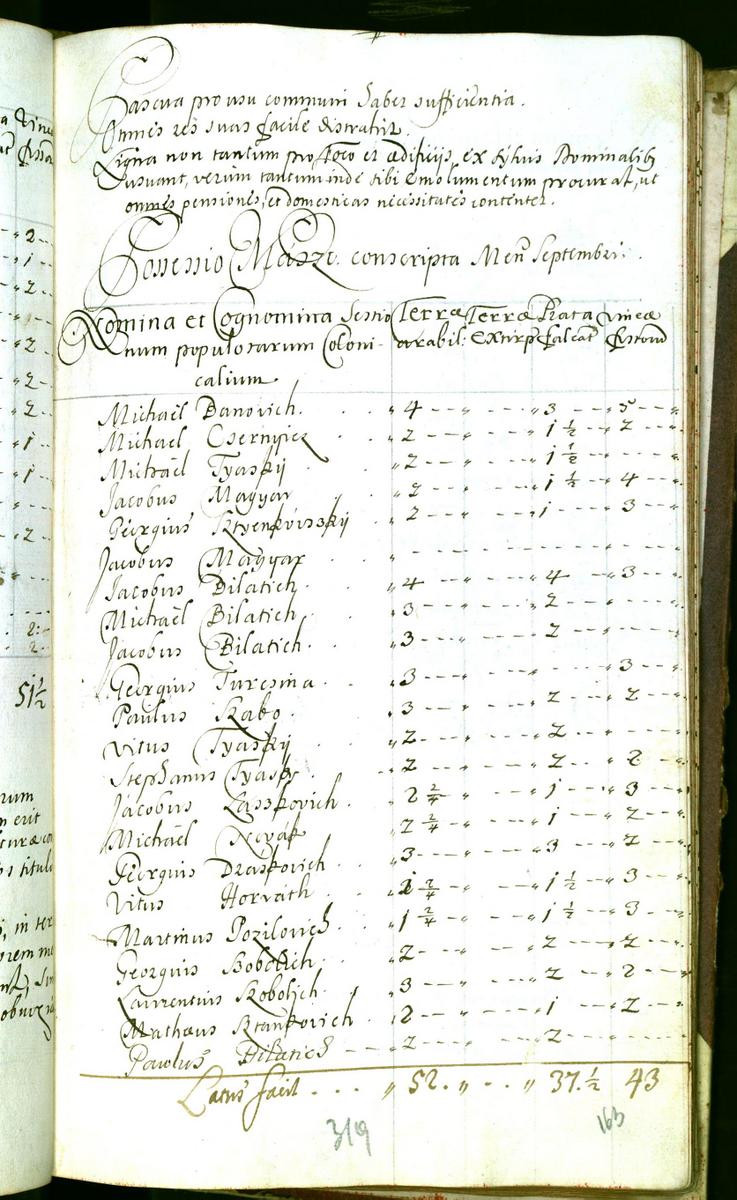 Pascua pro usu communi habet sufficientia.
Omnes res suas facile distrahit.
Ligna non tantum pro foco et ædificijs, ex sylvis Dominalib
usuant, verum tantum inde sibi emolumentum procurat, ut
omnes pensiones, et domesticas necessitates contentet.
Possessio Másze. conscripta Men Septembri.
Nomina et Cognomina Sessio Terræ Terræ Prata Vineæ
num populosarum Coloni- arabil: Extirp falcat fossorū
calium.
Michaël Banovich. . . „ 4 - - „ - - „ 3 - - „ 5 - - „
Michael Csernyicz . . „ 2 - - „ - - „ 1 ½ - „ 2 - - „
Michaël Tyaskij . . „ 2 - - „ - - „ 1 ½ - - „
Jacobus Magyar . . „ 2 - - „ - - „ 1 ½ „ 4 - - „
Georgius „ 2 - - „ - - „ 1 - - „ 3 - - „
Jacobus Magyar . . „ - - - „ - - - „ - - - „
Jacobus Bilatich . . „ 4 - - „ - - „ 4 - - „ 3 - - „
Michaël Bilatich . . „ 3 - - „ - - „ 2 - - „
Jacobus Bilatich . . „ 3 - - „ - - „ 2 - - „
Georgius Turcsina . . „ 3 - - „ - - „ - - „ 3 - - „
Paulus Kabo . . „ 3 - - „ - - „ 2 - - „ 2 - - „
Vitus Tyaskij . . „ 2 - - „ - - „ 2 - - „
Stephanus Tyasky . . „ 2 - - „ - - „ 2 - - „ 2 - - „
Jacobus Lasskovich . „ 2 2/4 „ - - „ 1 - - „ 3 - - „
Michaël Novák . . „ 2 2/4 „ - - „ 1 - - „ 2 - - „
Georgius Draskovich . „ 3 - - „ - - „ 3 - - „ 2 - - „
Vitus Horváth . . „ 1 2/4 „ - - „ 1 ½ - „ 3 - - „
Martinus Pozilovich . „ 1 2/4 „ - - „ 1 ½ - „ 3 - - „
Georgius Bobolich . „ 2 - - „ - - „ 2 - - „ 2 - - „
Laurentius Kobolich . „ 3 - - „ - - „ 2 - - „ 2 - - „
Mathæus Stankovich . „ 2 - - „ - - „ 1 - - „ 2 - - „
Paulus Bilatich - - „ 2 - - „ - - „ 2 - - „
Latus facit . . . „ 52. „ - . . „ 37.½ 43
319
163
51½